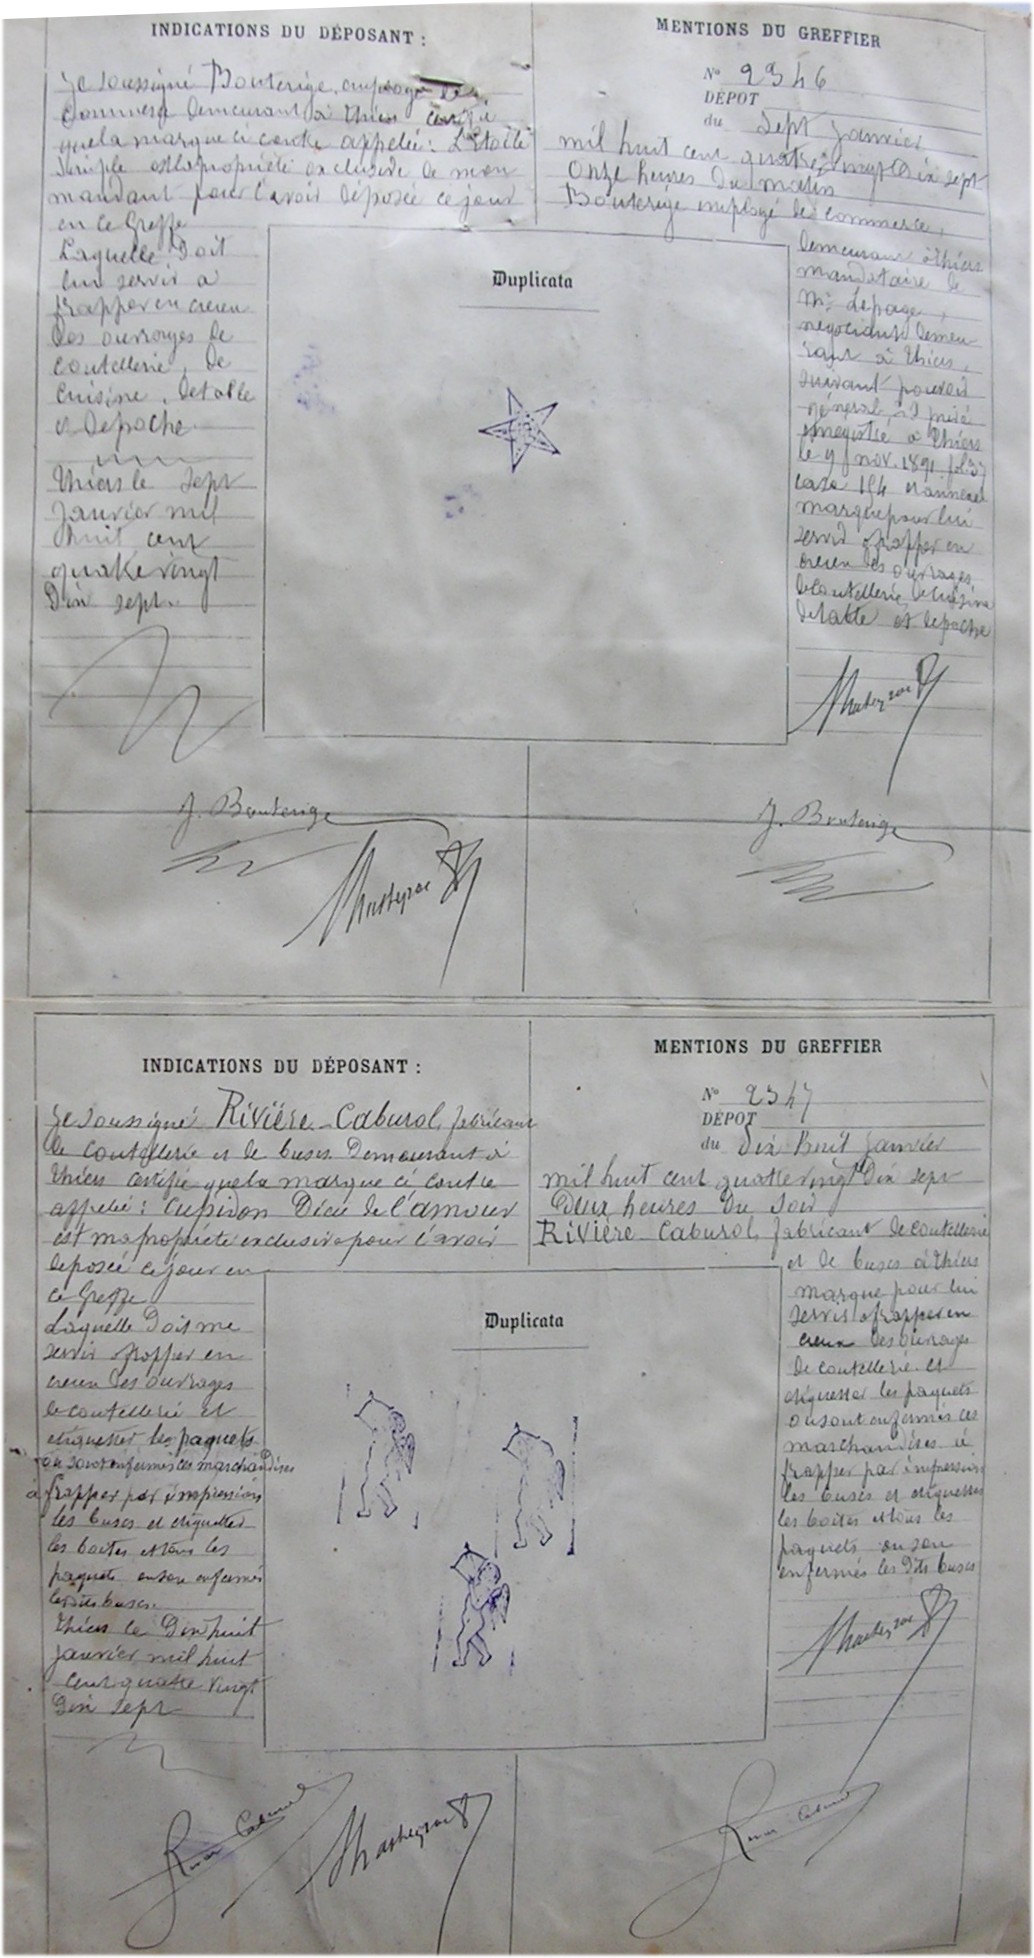 INDICATIONS DU DÉPOSANT :
Je soussigné Bouterige, employé de
commerce demeurant à Thiers certifie
que la marque ci contre appelée : L'Etoile
simple est la propriété exclusive de mon
mandant pour l'avoir déposée ce jour
en ce Greffe
Laquelle doit
lui servir a
frapper en creux
des ouvrages de
coutellerie, de
cuisine, de table
et de poche
Thiers le sept
janvier mil
huit cent
quatre vingt
dix sept
J. Bouterige
MENTIONS DU GREFFIER
N° 2346
DÉPOT
du sept janvier
mil huit cent quatre vingt dix sept
onze heures du matin
Bouterige employé de commerce,
demeurant à Thiers
mandataire de
Mr Lepage,
négociant demeu
rant à Thiers,
suivant pouvoir
général, s.s privé
enregistré à Thiers
le 9 nov. 1891 fol. 37
case 154 et annexé
marque pour lui
servir à frapper en
creux les ouvrages
de coutellerie, de cuisine
de table et de poche
J. Bouterige
Duplicata
INDICATIONS DU DÉPOSANT :
Je soussigné Rivière-Caburol, fabricant
de coutellerie et de buscs demeurant à
Thiers certifie que la marque ci contre
appelée : Cupidon Dieu de l'amour
est ma propriété exclusive pour l'avoir
déposée ce jour en
ce Greffe
Laquelle doit me
servir à frapper en
creux des ouvrages
de coutellerie et
étiquetter les paquets
où sont enfermés ces marchandises
à frapper par impression
les buscs et étiquetter
les boites et tous les
paquets où son enfermés
les dits buscs.
Thiers le dix huit
janvier mil huit
cent quatre vingt
dix sept
MENTIONS DU GREFFIER
N° 2347
DÉPOT
du dix huit janvier
mil huit cent quatre vingt dix sept
deux heures du soir
Rivière-Caburol, fabricant de coutellerie
et de buscs à Thiers
marque pour lui
servir à frapper en
creux des ouvrages
de coutellerie et
étiquetter les paquets
où sont enfermés ces
marchandises à
frapper par impression
les buscs et étiquetter
les boites et tous les
paquets où son
enfermés les dits buscs
Duplicata